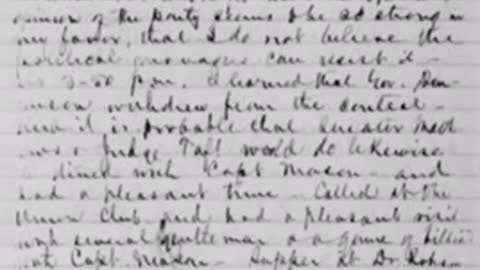 opinion of the party seems to be so strong in
my favor, that I do not believe the
political managers can resist it -
3-50 p.m. I learned that Gov. Den-
nison withdrew from the contest -
and it is probable that Senator
& Judge Taft would do likewise
dined with Capt Mason - and
had a pleasant time - Called at the
Union Club and had a pleasant visit
with several gentleman & a game of billi
with Capt Mason - Supper at Dr